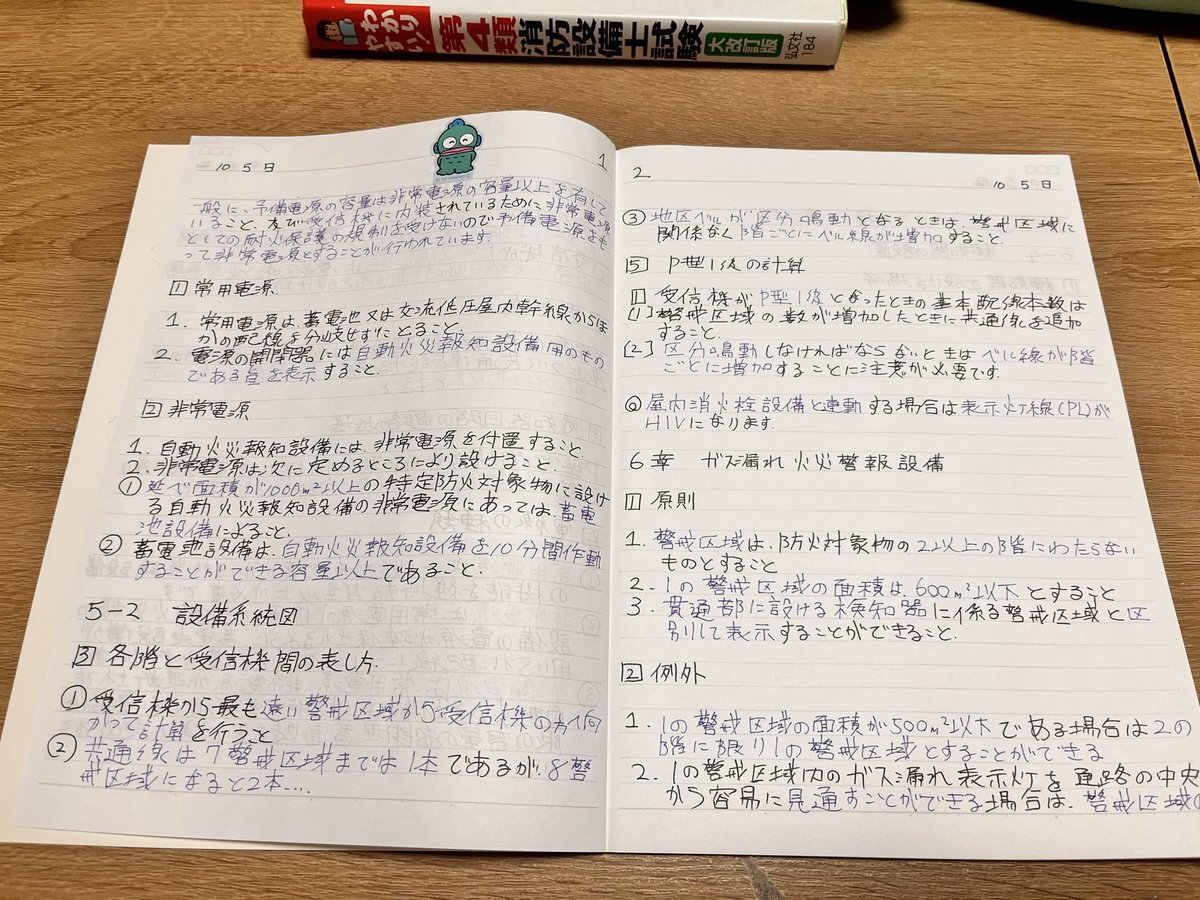 わかりやすい! 第4類消防設備士試験 大改訂版 弘文社 184
10 5 日
1
一般に、予備電源の容量は非常電源の容量以上を有して
いること、及び受信機に内装されているために非常電源
としての耐火保護の規制を受けないので予備電源をも
って非常電源とすることが行われています。
1 常用電源
1. 常用電源は、蓄電池又は交流低圧屋内幹線からほ
かの配線を分岐せずにとること。
2. 電源の開閉器には自動火災報知設備用のもの
である旨を表示すること。
2 非常電源
1. 自動火災報知設備には、非常電源を付置すること。
2. 非常電源は次に定めるところにより設けること。
① 延べ面積が1000m²以上の特定防火対象物に設け
る自動火災報知設備の非常電源にあっては、蓄電
池設備によること。
② 蓄電池設備は、自動火災報知設備を10分間作動
することができる容量以上であること。
5-2 設備系統図
3 各階と受信機間の表し方
① 受信機から最も遠い警戒区域から受信機の方へ向
かって計算を行うこと
② 共通線は7警戒区域までは1本であるが、8警
戒区域になると2本....
2
10 5 日
③ 地区ベルが区分鳴動となるときは、警戒区域に
関係なく階ごとにベル線が増加すること。
5 P型1級の計算
1 受信機がP型1級となったときの基本配線本数は
[1] 警戒区域の数が増加したときに共通線を追加
すること。
[2] 区分鳴動しなければならないときはベル線が階
ごとに増加することに注意が必要です。
◎ 屋内消火栓設備と連動する場合は表示灯線(PL)が
HIVになります。
6章 ガス漏れ火災警報設備
1 原則
1. 警戒区域は、防火対象物の2以上の階にわたらない
ものとすること
2. 1の警戒区域の面積は、600m²以下とすること
3. 貫通部に設ける検知器に係る警戒区域と区
別して表示することができること。
2 例外
1. 1の警戒区域の面積が500m²以下である場合は2の
階に限り1の警戒区域とすることができる
2. 1の警戒区域内のガス漏れ表示灯を通路の中央
から容易に見通すことができる場合は、警戒区域の